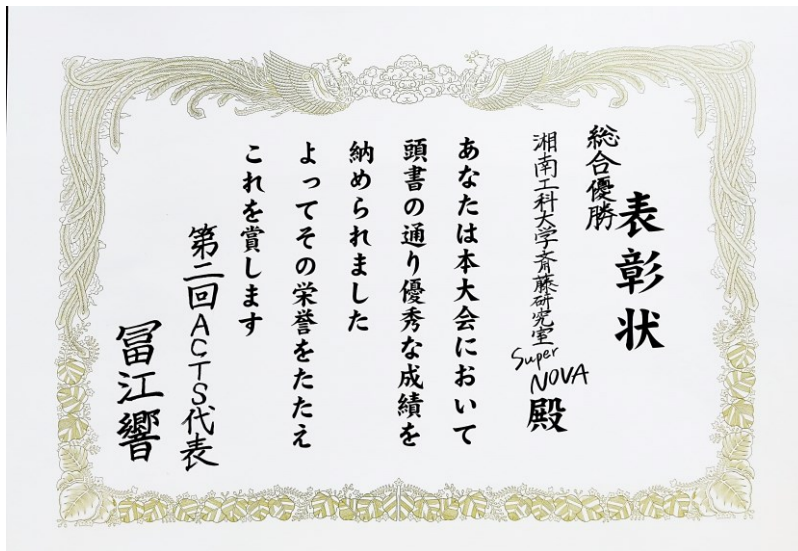 表彰状
総合優勝
湘南工科大学斉藤研究室
Super
NOVA
殿
あなたは本大会において
頭書の通り優秀な成績を
納められました
よってその栄誉をたたえ
これを賞します
第二回ACTS代表
冨江響